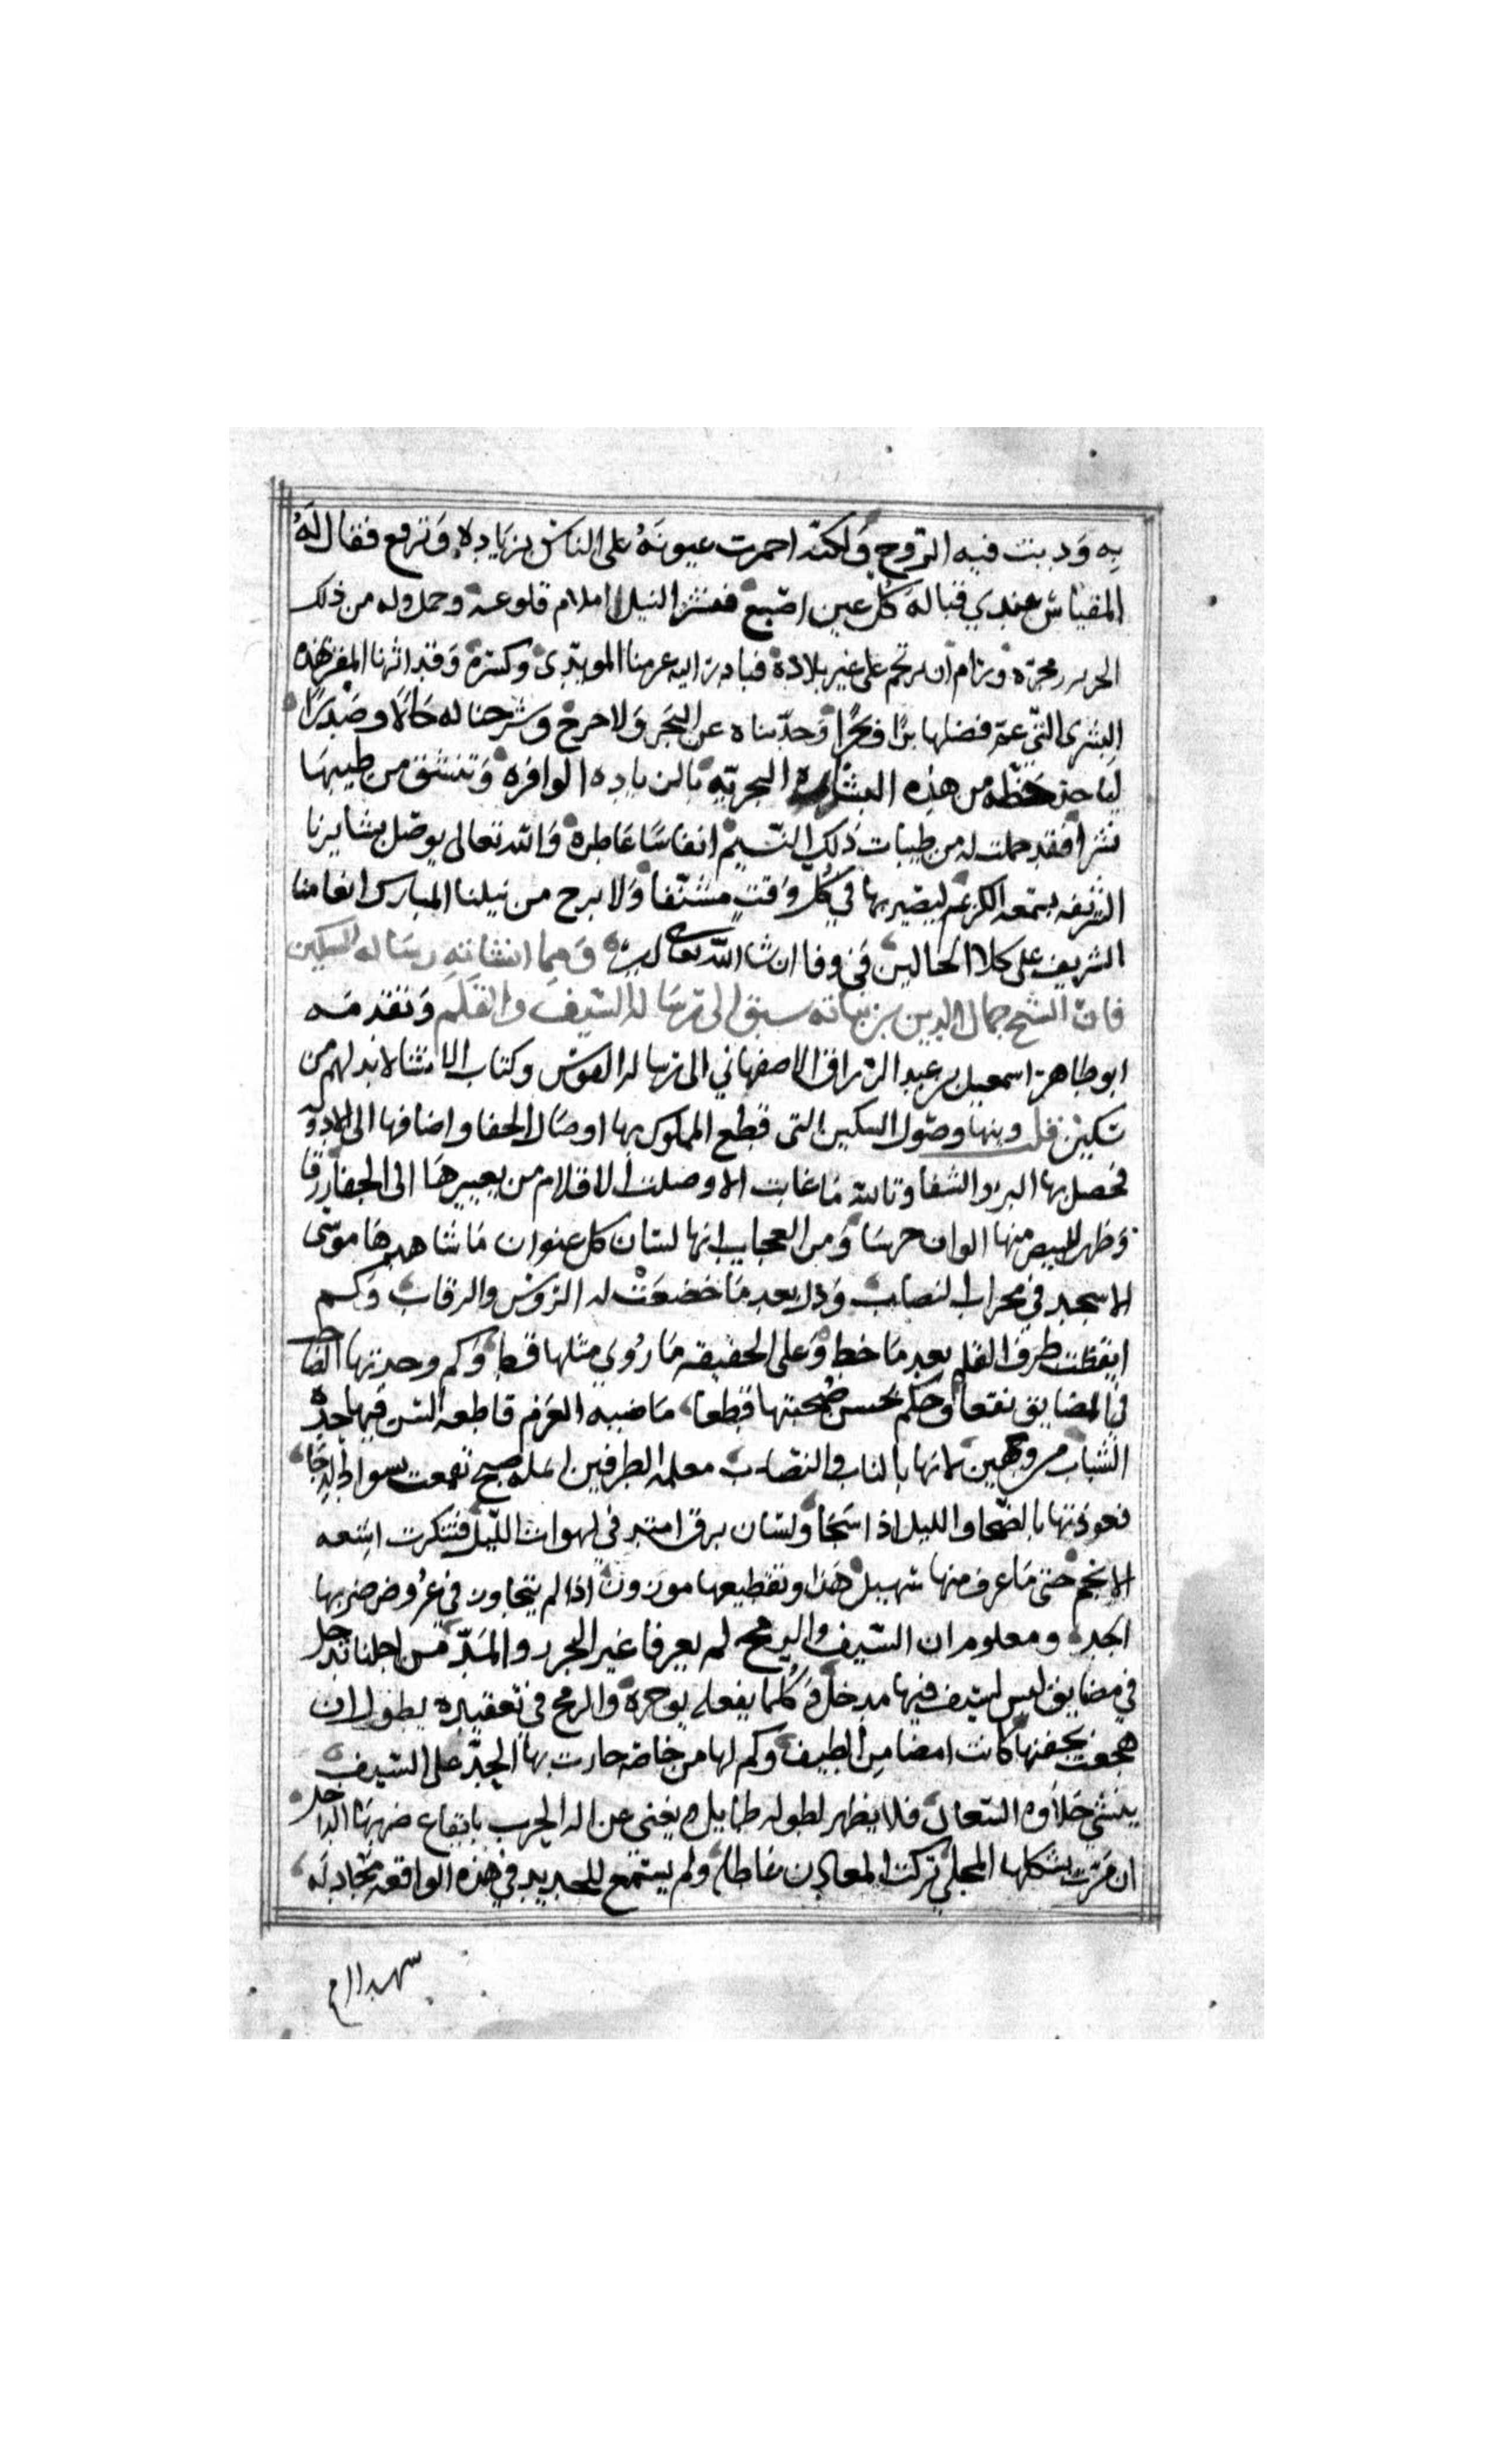 به ودبت فيه الروح ولكنه احمرت عيونه على الناس بزياده وترفع فقال له
المقياس عندي قبالة كل عين اصبع فنشر النيل اعلام قلوعه وحمل وله من ذلك
الحرير زمجره ورام ان يهجم على غير بلاده فبادر اليه عزمنا المويدي وكسره وقد اثرنا المقر بهذه
البشرى التي عم فضلها برا وبحرا وحدثناه عن البحر ولا حرج وشرحنا له حالا وصدرا
لياخذ حظه من هذه البشاره البحريه بالزياده الوافره وتنشق من طيبها
نشرا فقد حملت له من طيبات ذلك النسيم انفاسا عاطره والله تعالى يوصل بشايرنا
الشريفه لسمعه الكريم ليصير بها في كل وقت مشنفا ولا برح من نيلنا المبارك وانعامنا
الشريف على كلا الحالين في وفا ان شا الله تعالى ومما انشاته رساله السكين
فان الشيخ جمال الدين بن نباته سبق الى رساله السيف والقلم وتقدمه
ابو طاهر اسمعيل بن عبد الرزاق الاصفهاني الى رساله القوس وكتاب الانشا لا بد لهم من
سكين فلـ وينهي وصول السكين التي قطع المملوك بها اوصال الجفا واضافها الى الادويه
فحصل بها البر والشفا وتالله ما غابت الا وصلت الاقلام من تعبيرها الى الجفا زرقا
وظهر للبيض منها الوان خرسا ومن العجايب انها لسان كل عنوان ما شاهدها موسى
الا سجد في محراب النصاب وذل بعد ما خضعت له الروس والرقاب وكم
ايقظت طرف القلم بعد ما خط وعلى الحقيقه ما روي مثلها قط وكم وجد بها الصاحب
في المضايق نفعا وحكم بحسن صحبتها قطعا ماضيه العزم قاطعه السن فيها حدة
الشباب من وجهين لانها بالناب والنصاب معلمه الطرفين انمله صبح تقمعت بسواد الدجا
فعوذتها بالضحى والليل اذا سجا ولسان برق امتد في لهوات الليل فتنكرت اشعه
الانجم حتى ما عرف منها سهيل هذا وتقطيعها موزون اذا لم يتجاوز في عروض ضربها
الحد ومعلوم ان السيف والرمح لم يعرفا غير الجزر والمد من اجلنا تدخل
في مضايق ليس للسيف فيها مدخل وكلما يفعله يوخره والرمح في تعقيده يطول ان
هجعت بجفنها كانت امضى من الطيف وكم لها من خاصه حازت بها الحد على السيف
ينسي حلاوه العسال فلا يظهر لطوله طايل ويغني عن اله الحرب بايقاع ضربها الداخل
ان مرت بشكلها المحلى تركت المعادن عاطله ولم يسمع للحديد في هذه الواقعه مجادله